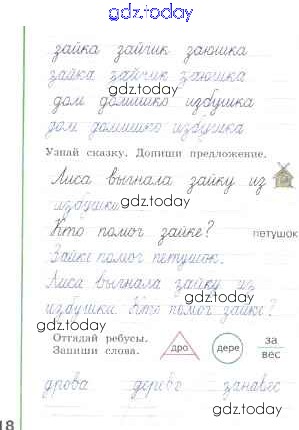 gdz.today
зайка зайчик заюшка
зайка зайчик заюшка
gdz.today
дом домишко избушка
дом домишко избушка
Узнай сказку. Допиши предложение.
Лиса выгнала зайку из
избушки.
gdz.today
Кто помог зайке? петушок
Зайке помог петушок.
gdz.today
Лиса выгнала зайку из
избушки. Кто помог зайке?
gdz.today
Отгадай ребусы.
Запиши слова.
дро
дере
за
вес
дрова дерево занавес
18
gdz.today